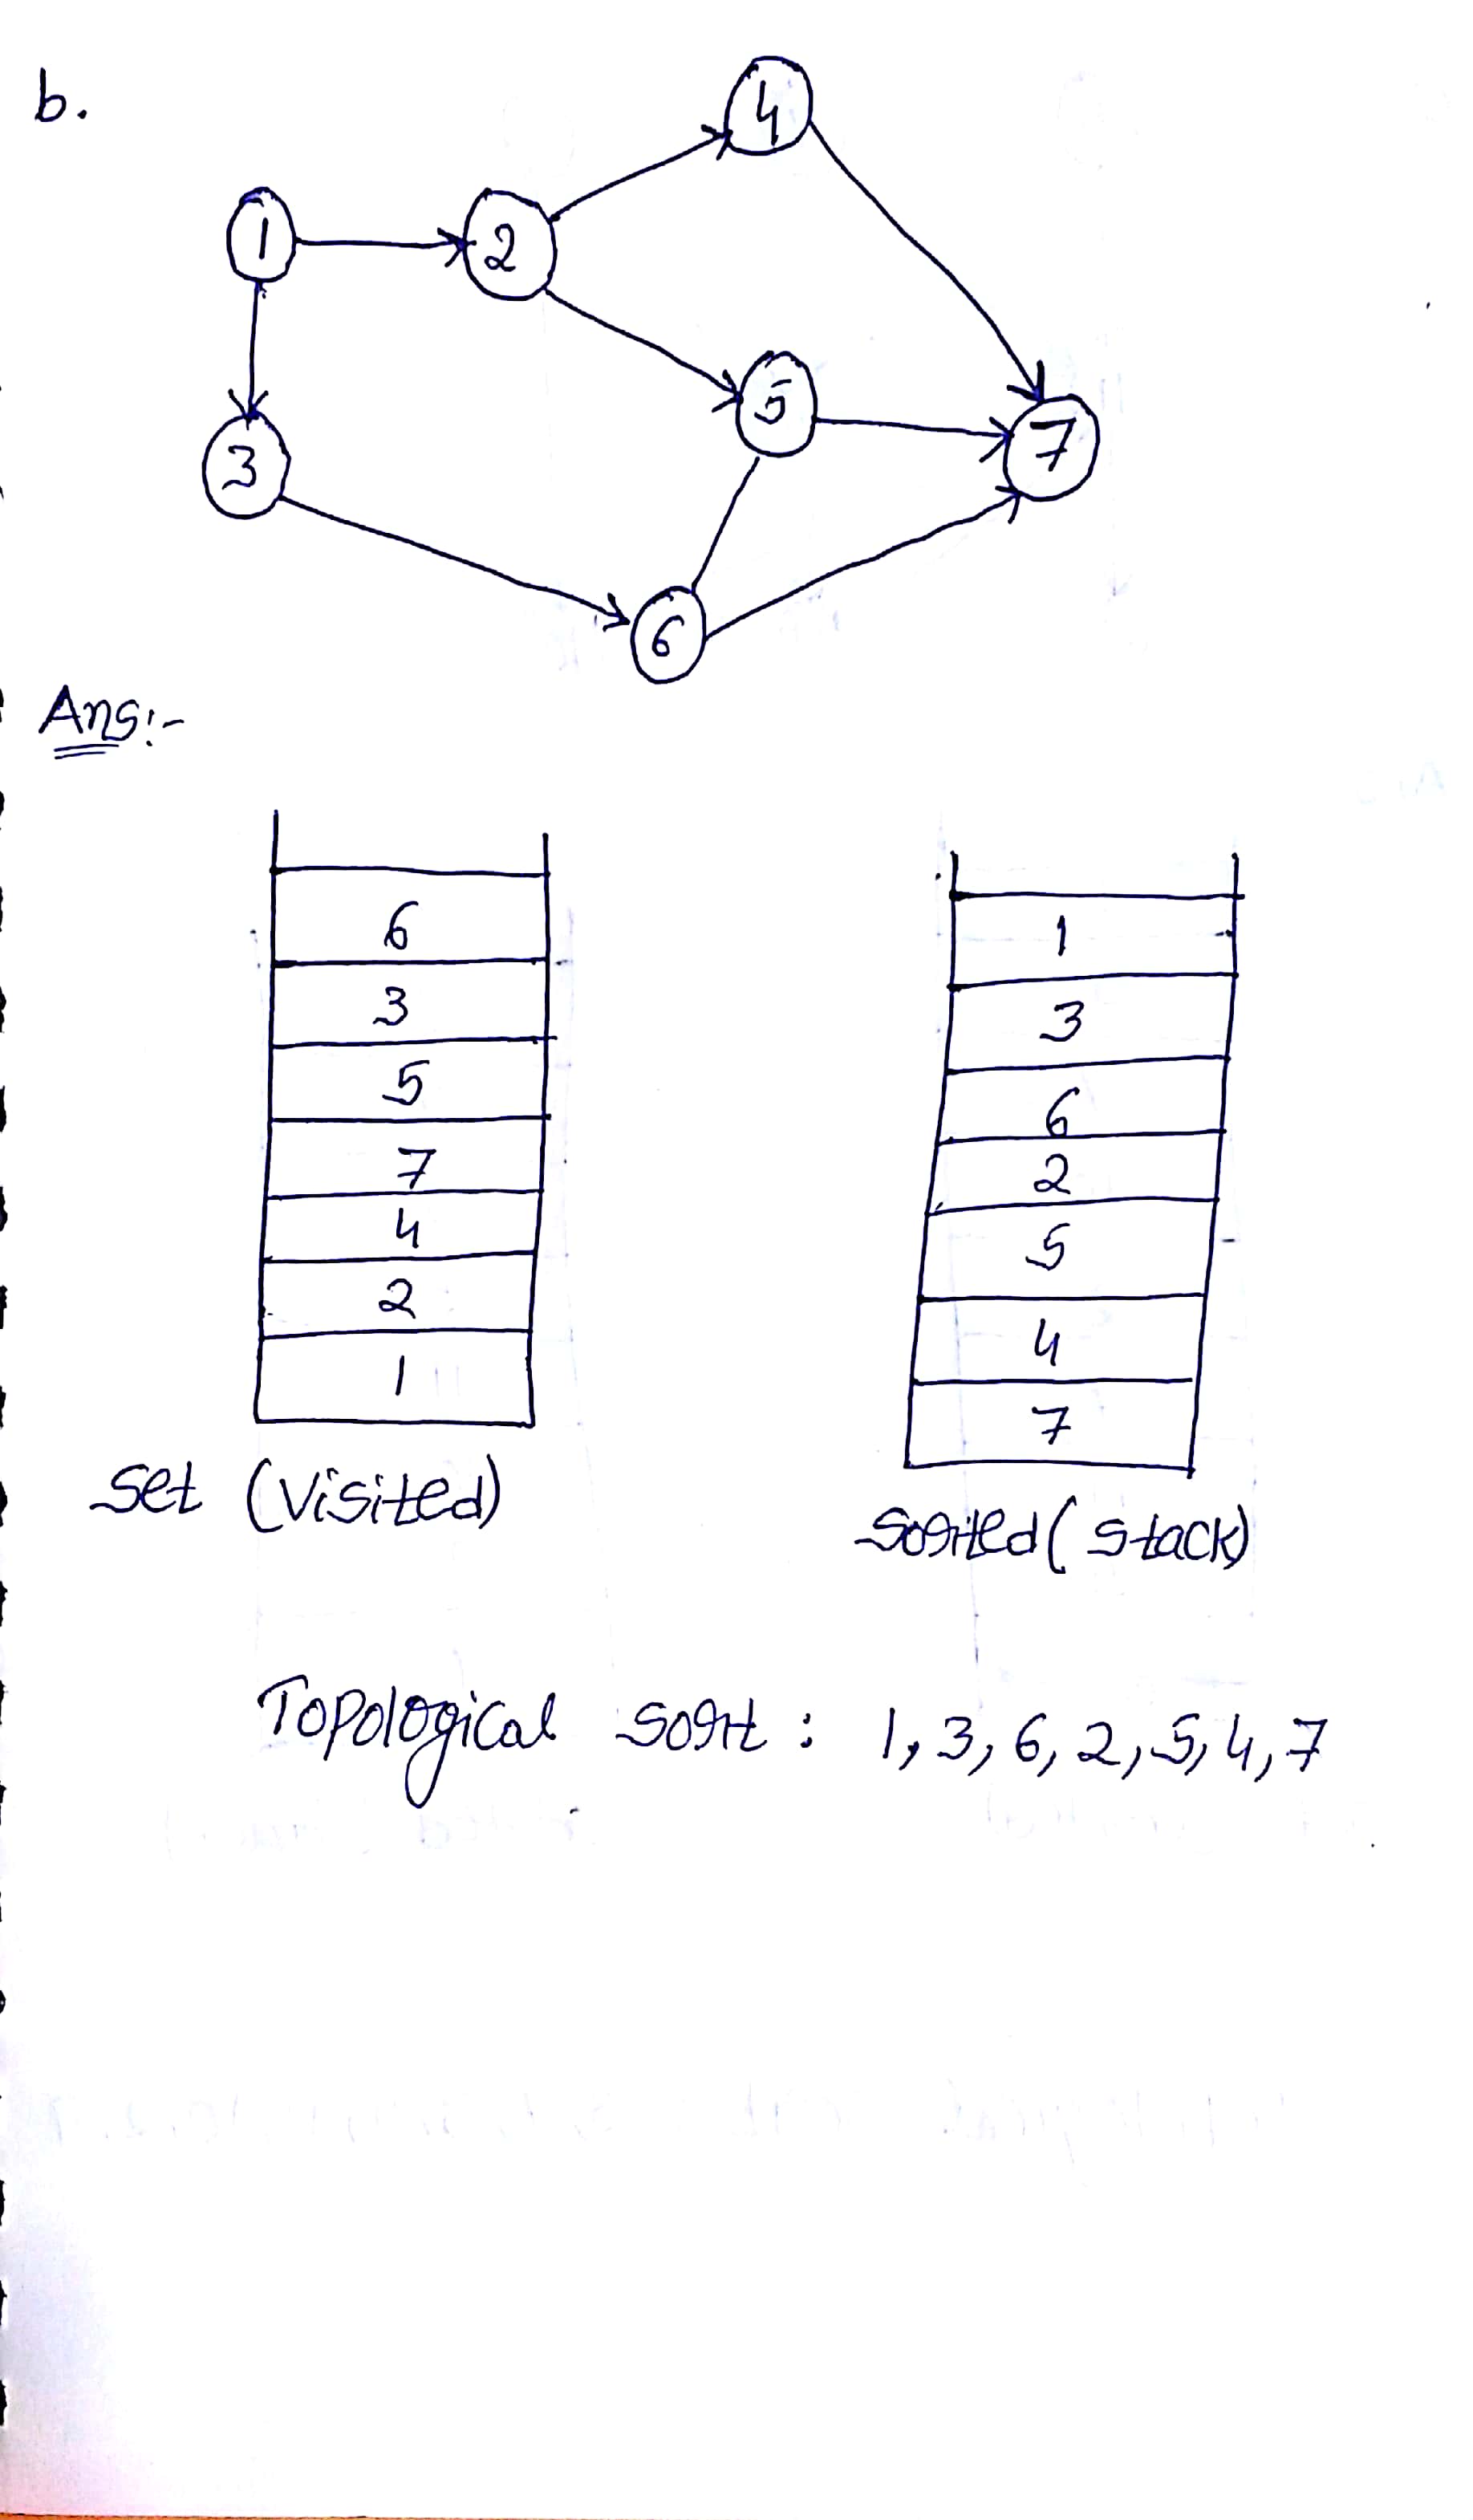 b.
4
1
2
5
7
3
6
Ans:-
6
3
5
7
4
2
1
Set (Visited)
1
3
6
2
5
4
7
Sorted (Stack)
Topological sort : 1, 3, 6, 2, 5, 4, 7